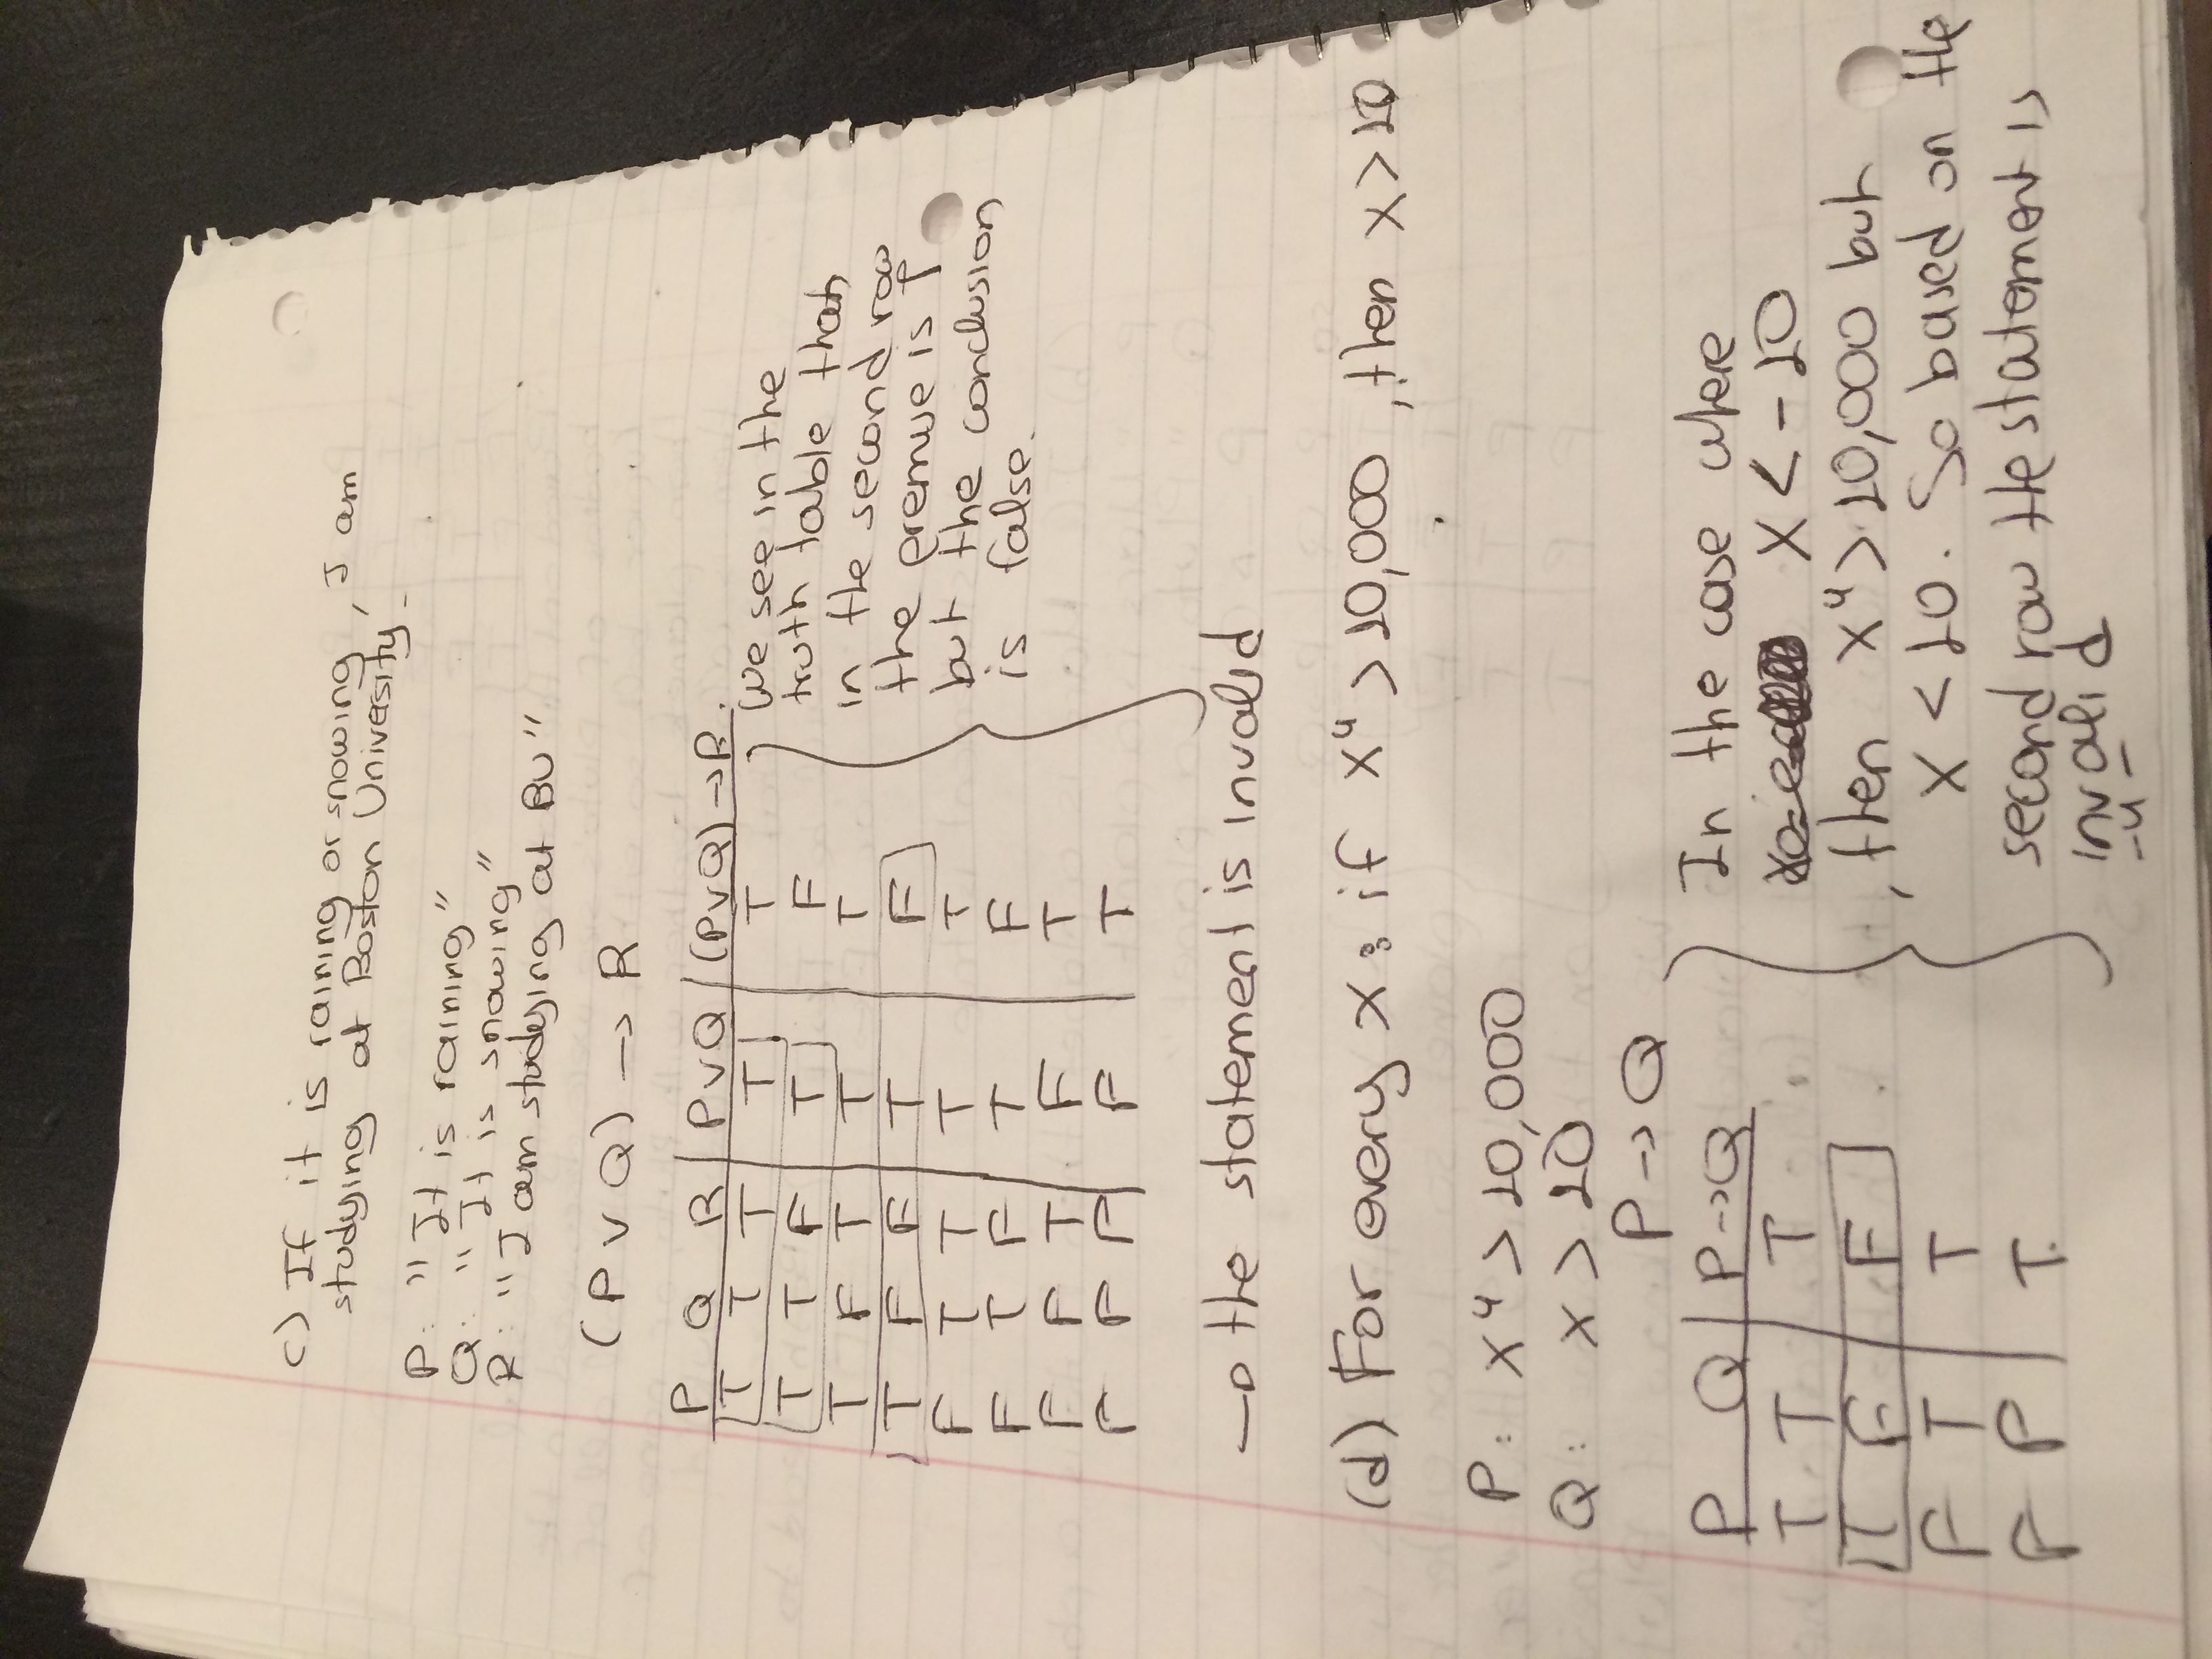 c) If it is raining or snowing, I am
studying at Boston University.
P: "It is raining"
Q: "It is snowing"
R: "I am studying at BU"
(P ∨ Q) → R
P Q R | P∨Q | (P∨Q) → R.
T T T | T | T
T T F | T | F
T F T | T | T
T F F | T | F
F T T | T | T
F T F | T | F
F F T | F | T
F F F | F | T
We see in the
truth table that,
in the second row
the premise is T
but the conclusion
is false.
→ the statement is invalid
(d) For every x: if x⁴ > 10,000, then x > 10
P: x⁴ > 10,000
Q: x > 10
P → Q
P Q | P→Q
T T | T
T F | F
F T | T
F F | T.
In the case where
x < -10
, then x⁴ > 10,000 but
x < 10. So based on the
second row the statement is
invalid